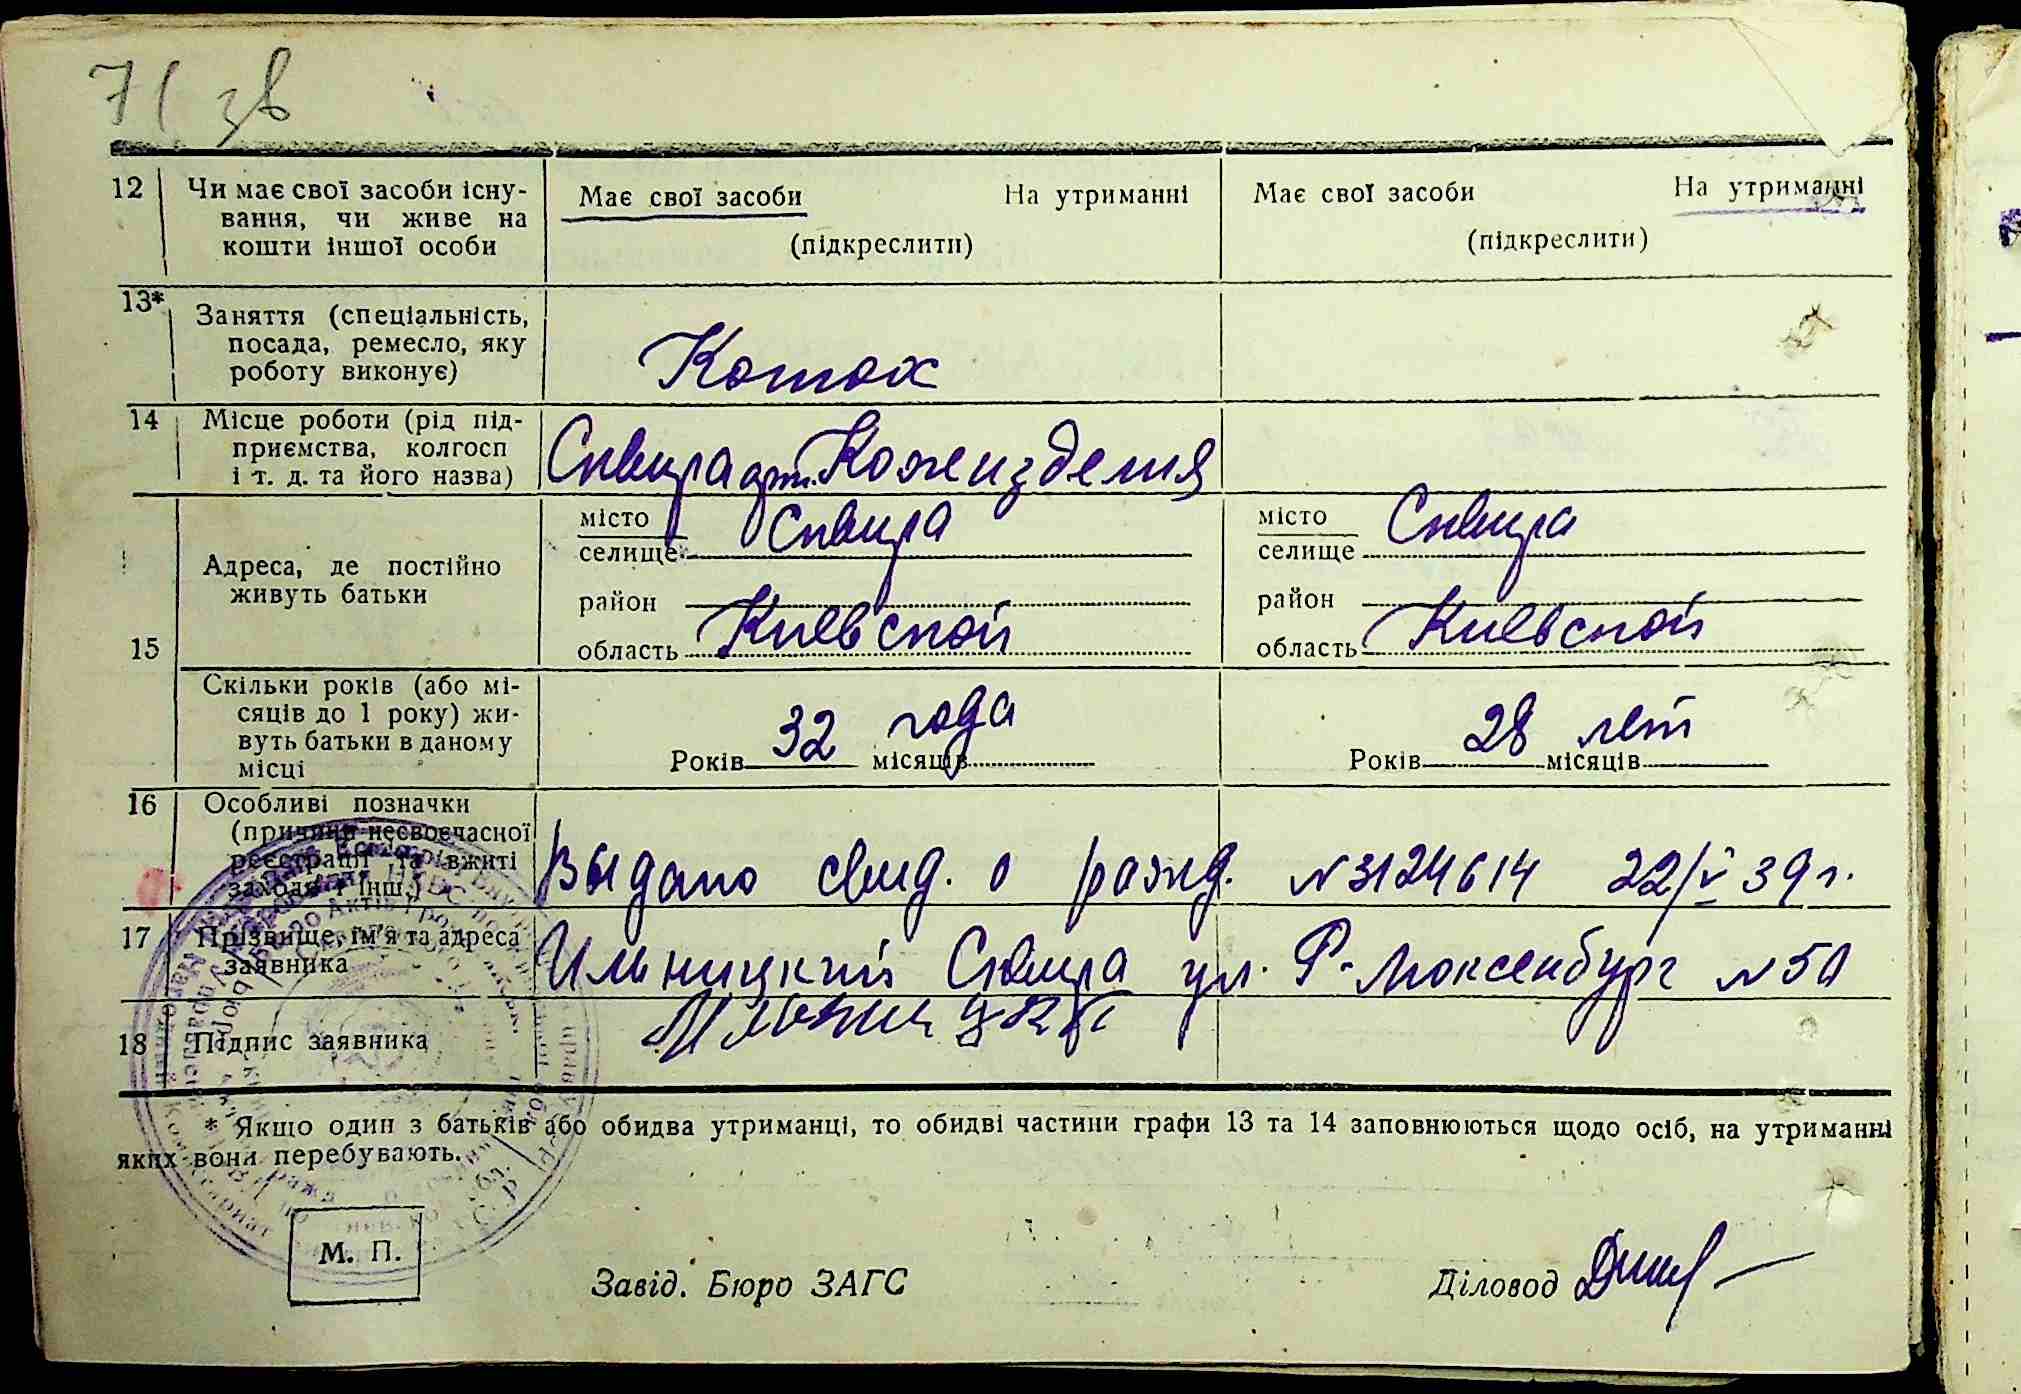 71 зв
12 Чи має свої засоби існу- Має свої засоби На утриманні Має свої засоби На утриманні
вання, чи живе на
кошти іншої особи (підкреслити) (підкреслити)
13*
Заняття (спеціальність,
посада, ремесло, яку
роботу виконує)
14 Місце роботи (рід під-
приємства, колгосп Сквира арт. Кожизделия
і т. д. та його назва)
місто Сквира місто Сквира
селище селище
Адреса, де постійно
живуть батьки
район район
15 область Киевской область Киевской
Скільки років (або мі-
сяців до 1 року) жи-
вуть батьки в даному Років 32 года місяців Років 28 лет місяців
місці
16 Особливі позначки
(причини несвоєчасної
реєстрації та вжиті Выдано свид. о рожд. №3124614 22/V 39 г.
заходи і інш.)
17 Прізвище, ім'я та адреса Ильницкий Сквира ул. Р-Люксенбург №51
заявника
18 Підпис заявника
* Якщо один з батьків або обидва утриманці, то обидві частини графи 13 та 14 заповнюються щодо осіб, на утриманні
яких вони перебувають.
М. П.
Завід. Бюро ЗАГС Діловод